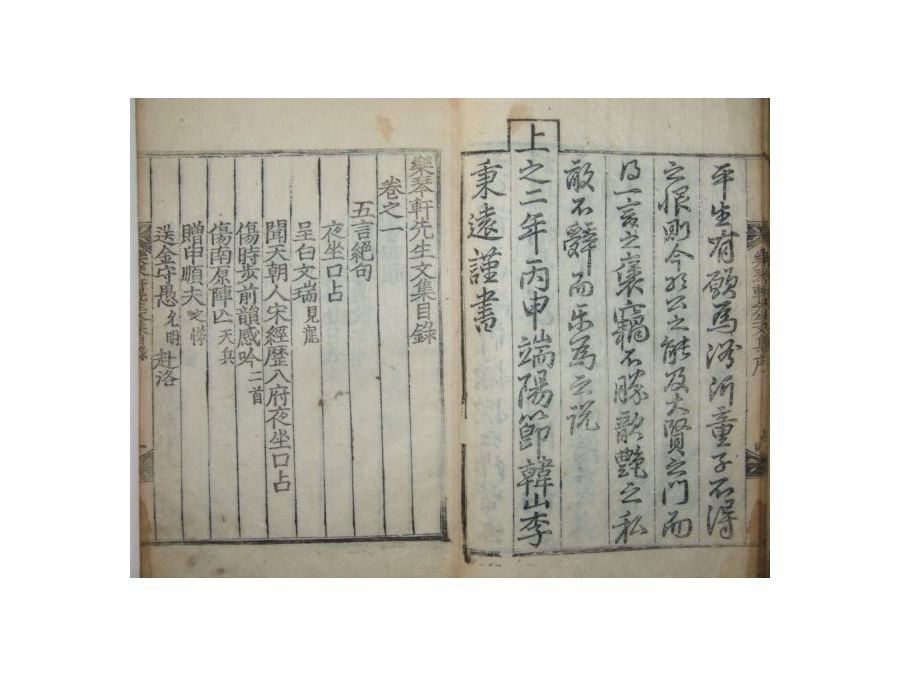 平生有願爲浴沂童子不得
之恨則今於公之能及大賢之門而
得一言之褒竊不勝歆艶之私
敢不辭而樂爲之說
上之二年丙申端陽節韓山李
秉遠謹書
樂琴軒先生文集目錄
卷之一
五言絕句
夜坐口占
呈白文瑞見龍
聞天朝人宋經歷八府夜坐口占
傷時步前韻感吟二首
傷南原陣亡天兵
贈申順夫之悌
送金守愚允明赴洛